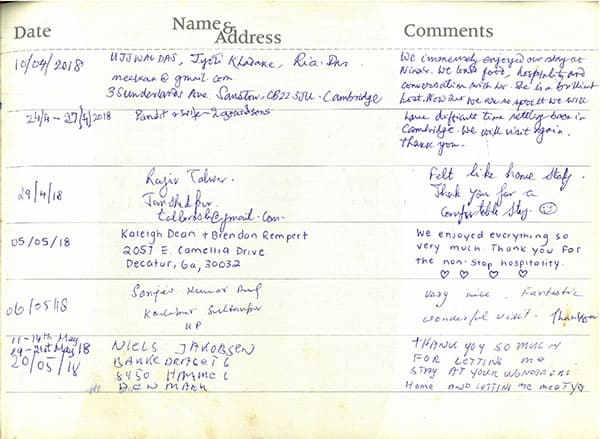 Date
Name & Address
Comments
10/04/2018
UJJWAL DAS, Jyoti Khadake, Ria Das
@gmail.com
3 Sunderlands Ave. Sawston, CB22 3JU. Cambridge
We immensely enjoyed our stay at
We loved food, hospitality and
conversation with her. She is a brilliant
host. Now we are spoilt we will
24/4 - 27/4/2018
Pandit & wife - 2 grandsons
have difficult time settling back in
Cambridge. We will visit again.
Thank you.
29/4/18
Rajiv Talwar.
Jamshedpur
@gmail.com
Felt like home stay.
Thank you for a
comfortable stay
05/05/18
Kaleigh Dean + Brendon Rempert
2057 E. Camellia Drive
Decatur, Ga, 30032
We enjoyed everything so
very much. Thank you for
the non-stop hospitality.
06/05/18
Kumar
Sultanpur
UP
very nice. Fantastic
wonderful visit. Thank you
11-14th May
19-21st May 18
20/05/18
NIELS JAKOBSEN
6
8450 HAMMEL
DENMARK
THANK YOU SO MUCH
FOR LETTING ME
STAY AT YOUR WONDERFUL
Home AND LETTING ME MEET YO